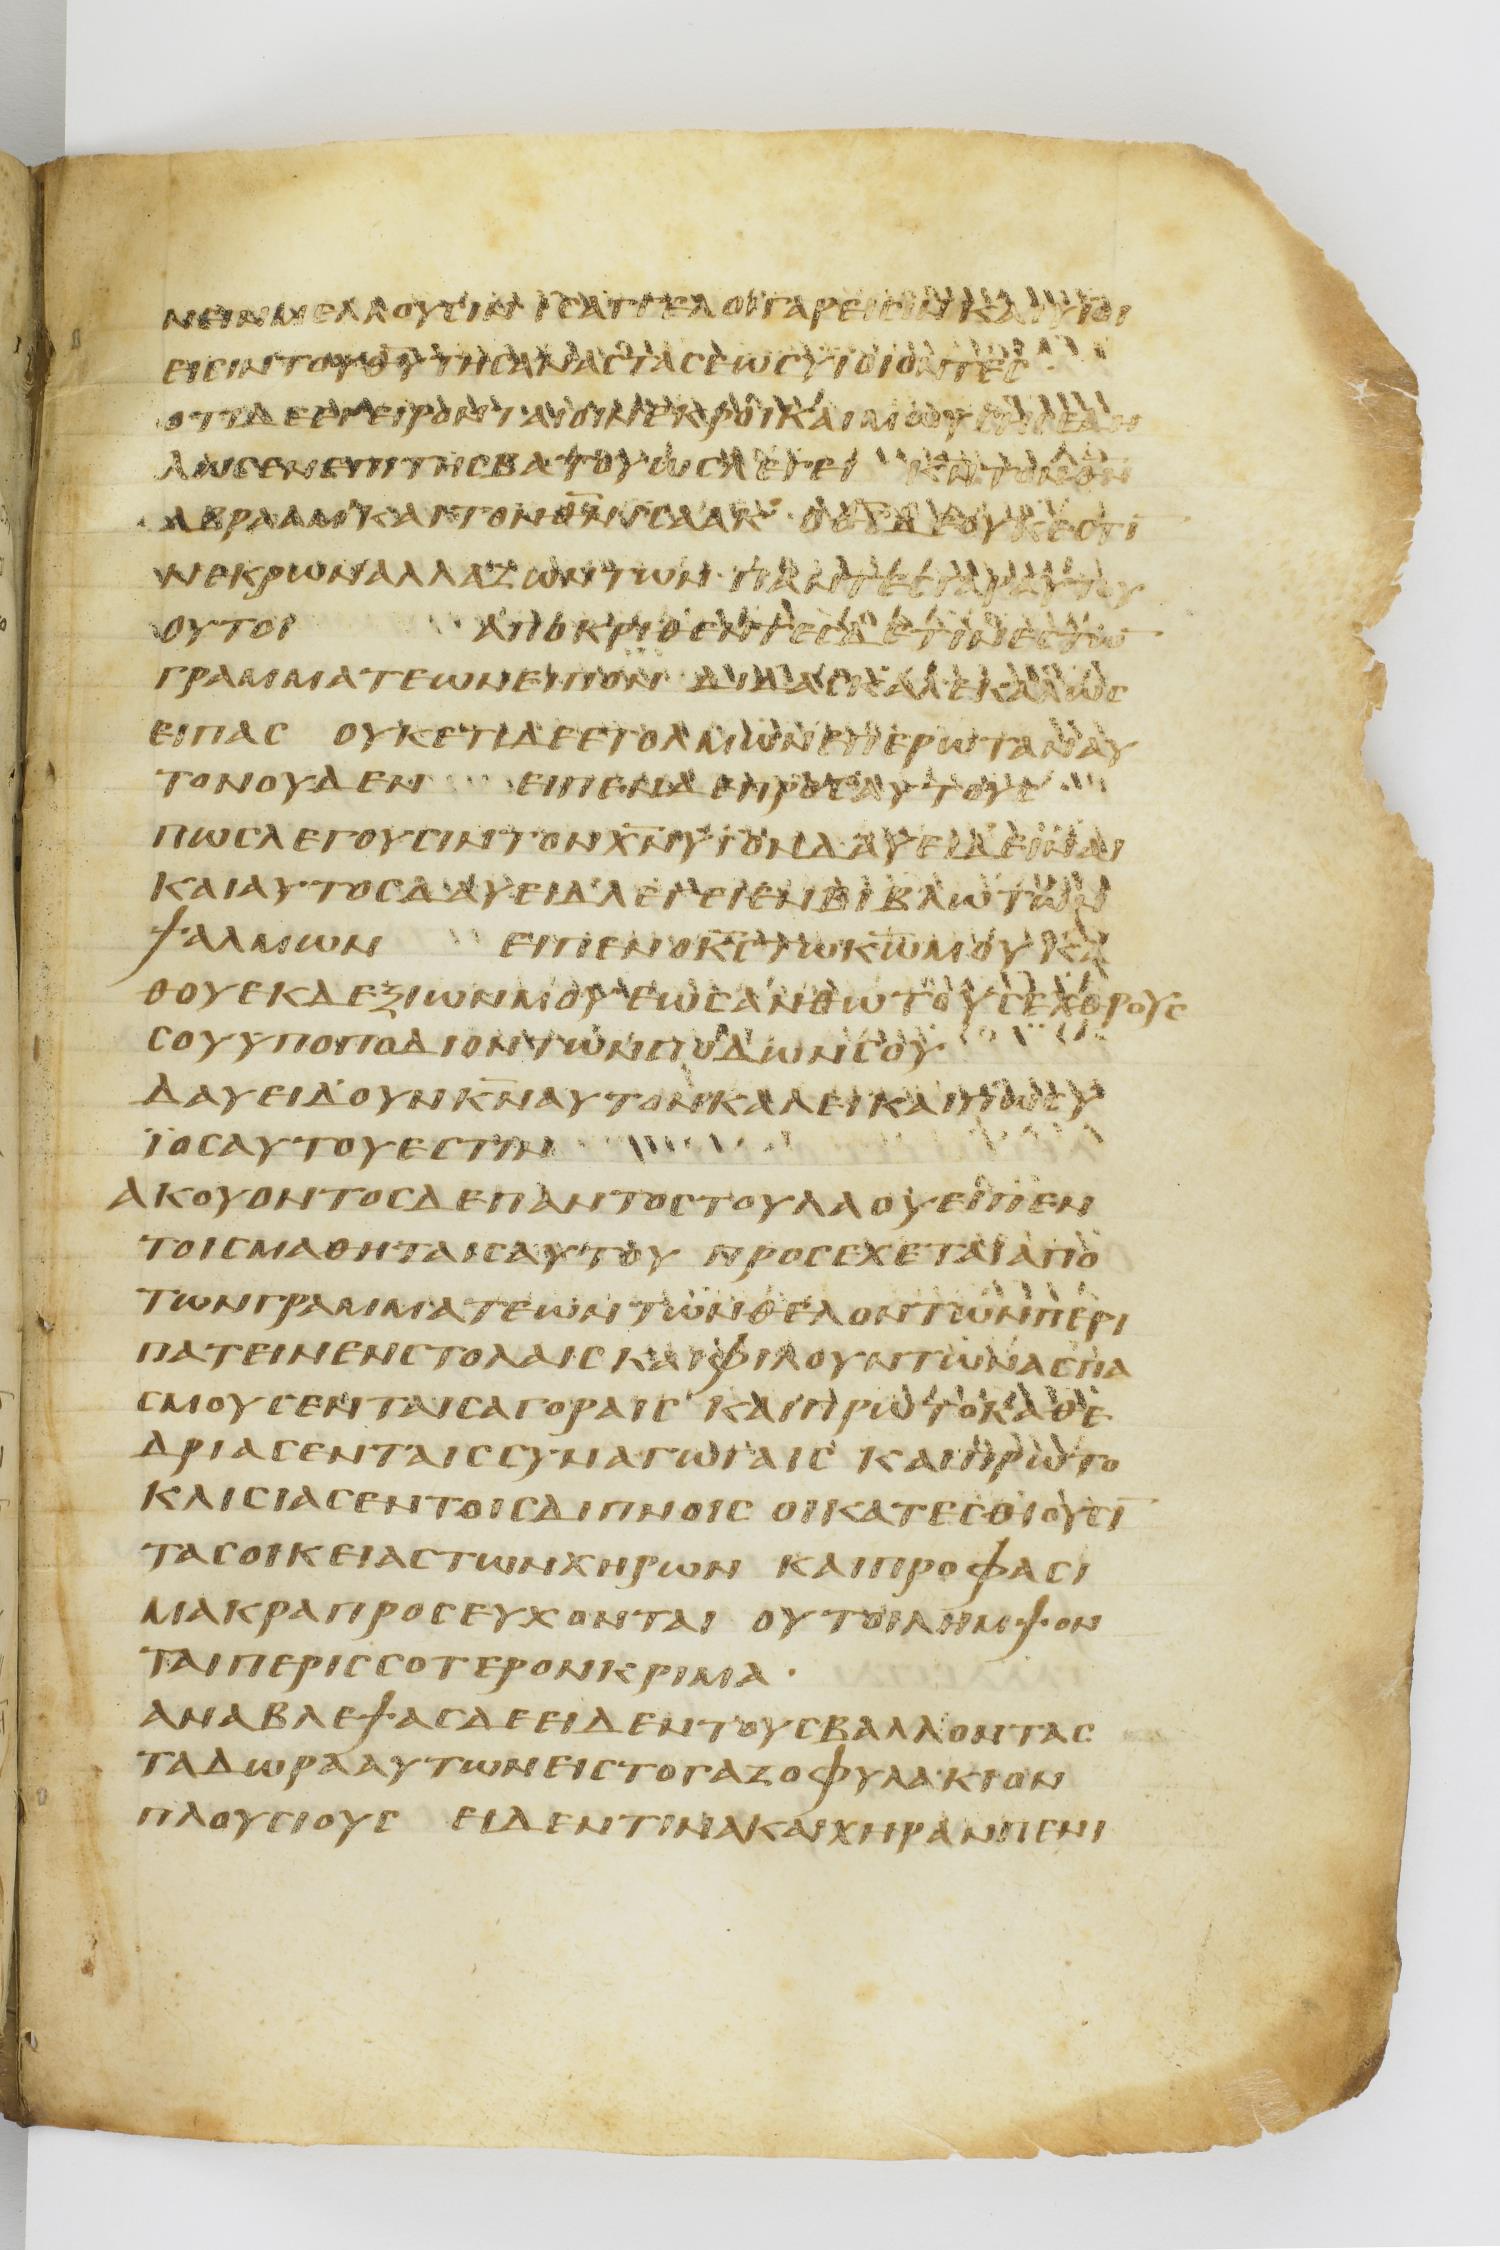 ΝΕΙΝΜΕΛΛΟΥCΙΝ ΙCΑΓΓΕΛΟΙΓΑΡΕΙCΙΝΚΑΙΥΙΟΙ
ΕΙCΙΝΤΟΥΘ̅Υ̅ΤΗCΑΝΑCΤΑCΕΩCΥΙΟΙΟΝΤΕC
ΟΤΙΔΕΕΓΕΙΡΟΝΤΑΙΟΙΝΕΚΡΟΙΚΑΙΜΩΥCΗC
ΕΠΙΤΗCΒΑΤΟΥΩCΛΕΓΕΙ Κ̅Ν̅ΤΟΝΘ̅Ν̅
ΑΒΡΑΑΜΚΑΙΤΟΝΘ̅Ν̅ΙCΑΑΚ ΟΥΚΕCΤΙ̅
ΝΕΚΡΩΝΑΛΛΑΖΩΝΤΩΝ ΠΑΝΤΕCΓΑΡΑΥΤΟΥ
ΟΥΤΟΙ ΑΠΟΚΡΙΘΕΝΤΕCΔΕΤΙΝΕCΤΩ̅
ΓΡΑΜΜΑΤΕΩΝΕΙΠΟΝ ΔΙΔΑCΚΑΛΕΚΑΛΩC
ΕΙΠΑC ΟΥΚΕΤΙΔΕΕΤΟΛΜΩΝΕΠΕΡΩΤΑΝΑΥ
ΤΟΝΟΥΔΕΝ ΕΙΠΕΝΔΕΠΡΟCΑΥΤΟΥC
ΠΩCΛΕΓΟΥCΙΝΤΟΝΧ̅Ν̅ΥΙΟΝΔΑΥΕΙΔΕΙΝΑΙ
ΚΑΙΑΥΤΟCΔΑΥΕΙΔΛΕΓΕΙΕΝΒΙΒΛΩΤΩΝ
ΨΑΛΜΩΝ ΕΙΠΕΝΟΚ̅C̅ΤΩΚ̅Ω̅ΜΟΥΚΑ
ΘΟΥΕΚΔΕΞΙΩΝΜΟΥΕΩCΑΝΘΩΤΟΥCΕΧΘΡΟΥC
CΟΥΥΠΟΠΟΔΙΟΝΤΩΝΠΟΔΩΝCΟΥ
ΔΑΥΕΙΔΟΥΝΚ̅Ν̅ΑΥΤΟΝΚΑΛΕΙΚΑΙΠΩCΥ
ΪΟCΑΥΤΟΥΕCΤΙΝ
ΑΚΟΥΟΝΤΟCΔΕΠΑΝΤΟCΤΟΥΛΑΟΥΕΙΠΕΝ
ΤΟΙCΜΑΘΗΤΑΙCΑΥΤΟΥ ΠΡΟCΕΧΕΤΑΙΑΠΟ
ΤΩΝΓΡΑΜΜΑΤΕΩΝΤΩΝΘΕΛΟΝΤΩΝΠΕΡΙ
ΠΑΤΕΙΝΕΝCΤΟΛΑΙCΚΑΙΦΙΛΟΥΝΤΩΝΑCΠΑ
CΜΟΥCΕΝΤΑΙCΑΓΟΡΑΙC ΚΑΙΠΡΩΤΟΚΑΘΕ
ΔΡΙΑCΕΝΤΑΙCCΥΝΑΓΩΓΑΙC ΚΑΙΠΡΩΤΟ
ΚΛΙCΙΑCΕΝΤΟΙCΔΙΠΝΟΙC ΟΙΚΑΤΕCΘΙΟΥCΙ̅
ΤΑCΟΙΚΕΙΑCΤΩΝΧΗΡΩΝ ΚΑΙΠΡΟΦΑCΙ
ΜΑΚΡΑΠΡΟCΕΥΧΟΝΤΑΙ ΟΥΤΟΙΛΗΜΨΟΝ
ΤΑΙΠΕΡΙCCΟΤΕΡΟΝΚΡΙΜΑ ·
ΑΝΑΒΛΕΨΑCΔΕΕΙΔΕΝΤΟΥCΒΑΛΛΟΝΤΑC
ΤΑΔΩΡΑΑΥΤΩΝΕΙCΤΟΓΑΖΟΦΥΛΑΚΙΟΝ
ΠΛΟΥCΙΟΥC ΕΙΔΕΝΤΙΝΑΚΑΙΧΗΡΑΝΠΕΝΙ